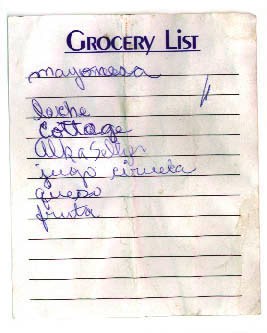 GROCERY LIST
mayonesa
leche
cottage
Alka Seltzer
jugo ciruela
queso
fruta